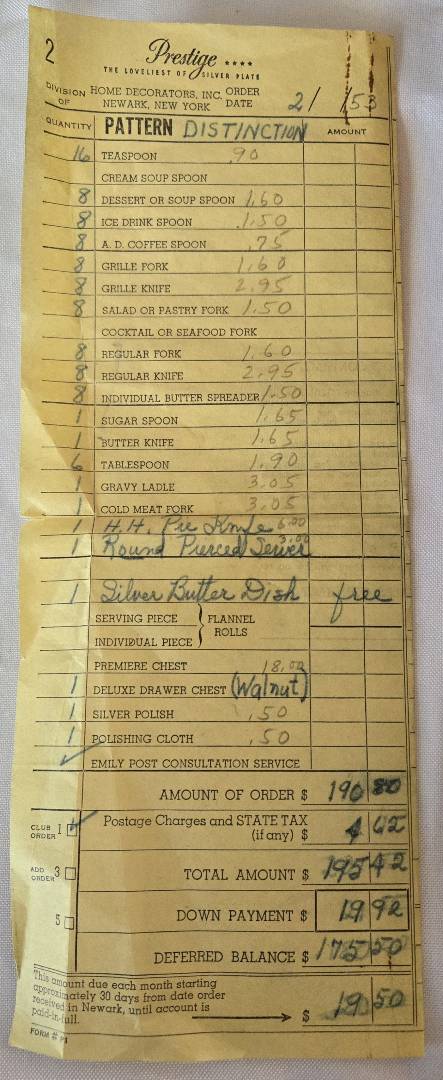 2
Prestige ****
THE LOVELIEST OF SILVER PLATE
DIVISION OF HOME DECORATORS, INC. ORDER
NEWARK, NEW YORK DATE 2/ /53
QUANTITY PATTERN DISTINCTION AMOUNT
16 TEASPOON .90
CREAM SOUP SPOON
8 DESSERT OR SOUP SPOON 1.60
8 ICE DRINK SPOON 1.50
8 A. D. COFFEE SPOON .75
8 GRILLE FORK 1.60
8 GRILLE KNIFE 2.95
8 SALAD OR PASTRY FORK 1.50
COCKTAIL OR SEAFOOD FORK
8 REGULAR FORK 1.60
8 REGULAR KNIFE 2.95
8 INDIVIDUAL BUTTER SPREADER 1.50
1 SUGAR SPOON 1.65
1 BUTTER KNIFE 1.65
6 TABLESPOON 1.90
1 GRAVY LADLE 3.05
1 COLD MEAT FORK 3.05
1 H.H. Pie Knife 6.00
1 Round Pierced Server 3.00
1 Silver Butter Dish free
SERVING PIECE } FLANNEL
INDIVIDUAL PIECE ROLLS
PREMIERE CHEST 18.00
1 DELUXE DRAWER CHEST (Walnut)
1 SILVER POLISH .50
1 POLISHING CLOTH .50
✓ EMILY POST CONSULTATION SERVICE
AMOUNT OF ORDER $ 190 80
CLUB ORDER 1 ✓ Postage Charges and STATE TAX
(if any) $ 4 62
ADD ORDER 3 TOTAL AMOUNT $ 195 42
5 DOWN PAYMENT $ 19 92
DEFERRED BALANCE $ 175 50
This amount due each month starting
approximately 30 days from date order
received in Newark, until account is
paid-in-full. $ 19 50
FORM # P1